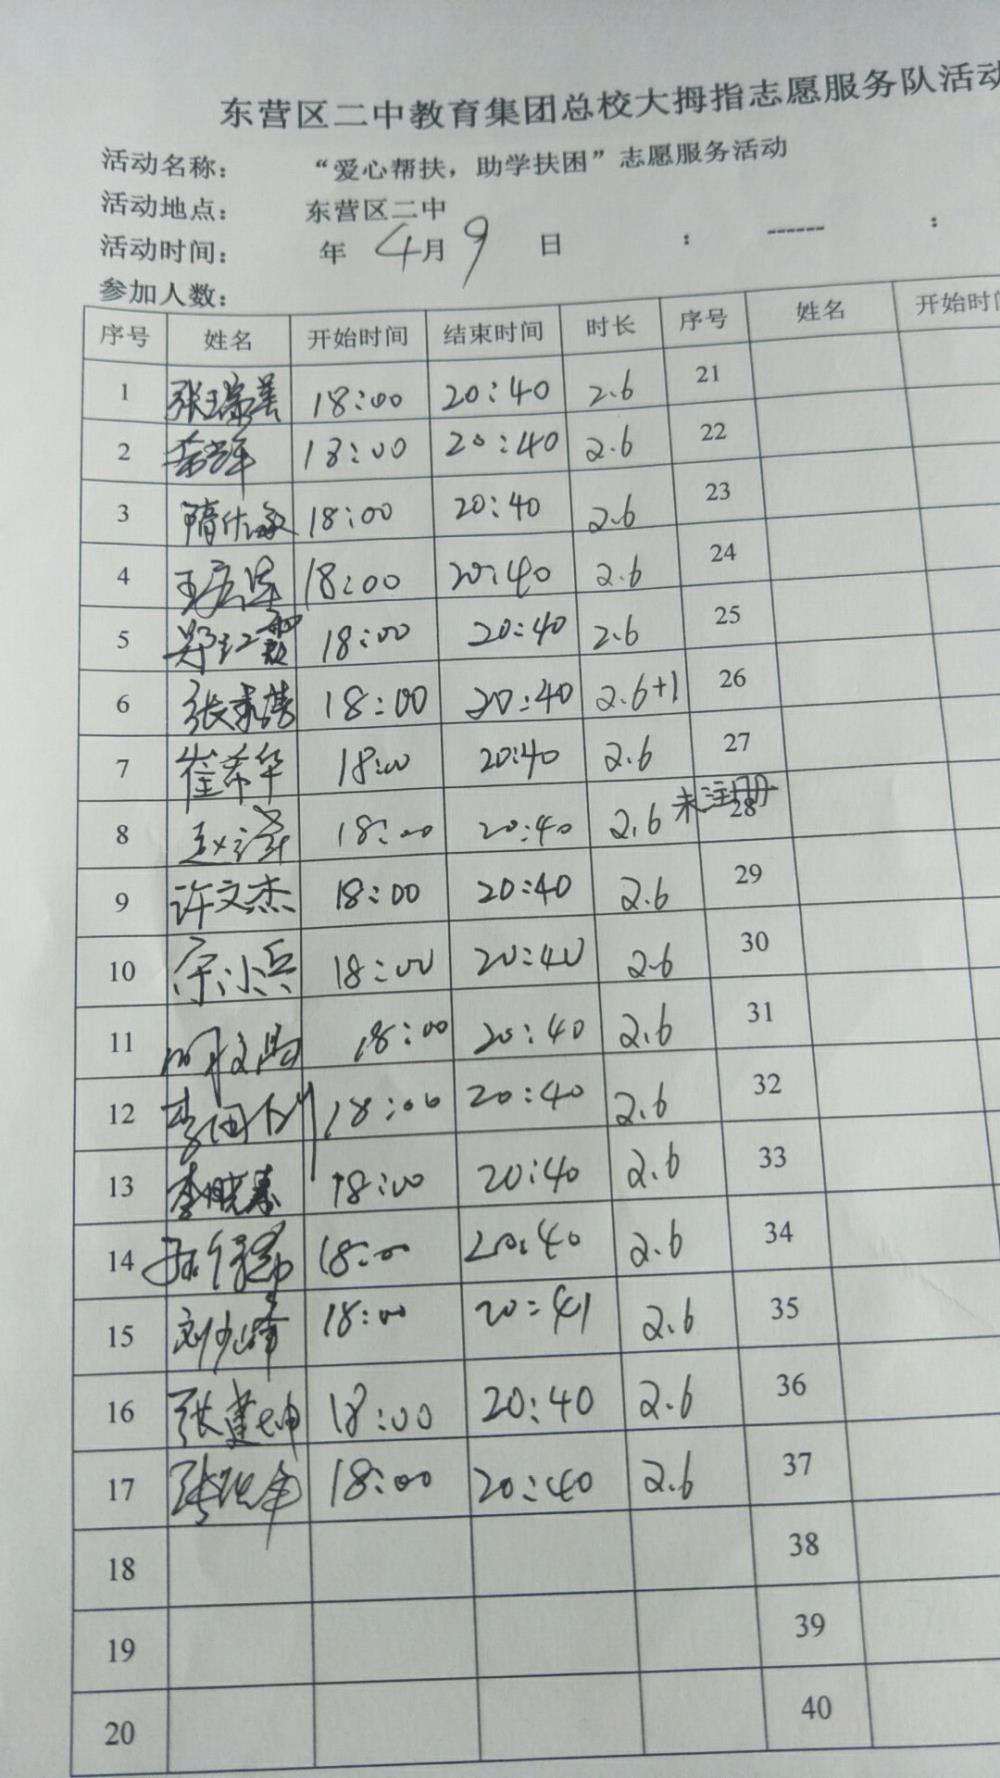 东营区二中教育集团总校大拇指志愿服务队活动
活动名称： “爱心帮扶，助学扶困”志愿服务活动
活动地点： 东营区二中
活动时间： 年 4月 9 日 : ------ :
参加人数：
序号 姓名 开始时间 结束时间 时长 序号 姓名 开始时间
1 18:00 20:40 2.6 21
2 18:00 20:40 2.6 22
3 18:00 20:40 2.6 23
4 18:00 20:40 2.6 24
5 18:00 20:40 2.6 25
6 18:00 20:40 2.6+1 26
7 崔希华 18:00 20:40 2.6 27
8 赵泽 18:00 20:40 2.6 未注册 28
9 许文杰 18:00 20:40 2.6 29
10 宗小兵 18:00 20:40 2.6 30
11 18:00 20:40 2.6 31
12 18:00 20:40 2.6 32
13 李晓燕 18:00 20:40 2.6 33
14 18:00 20:40 2.6 34
15 18:00 20:41 2.6 35
16 张建坤 18:00 20:40 2.6 36
17 18:00 20:40 2.6 37
18 38
19 39
20 40